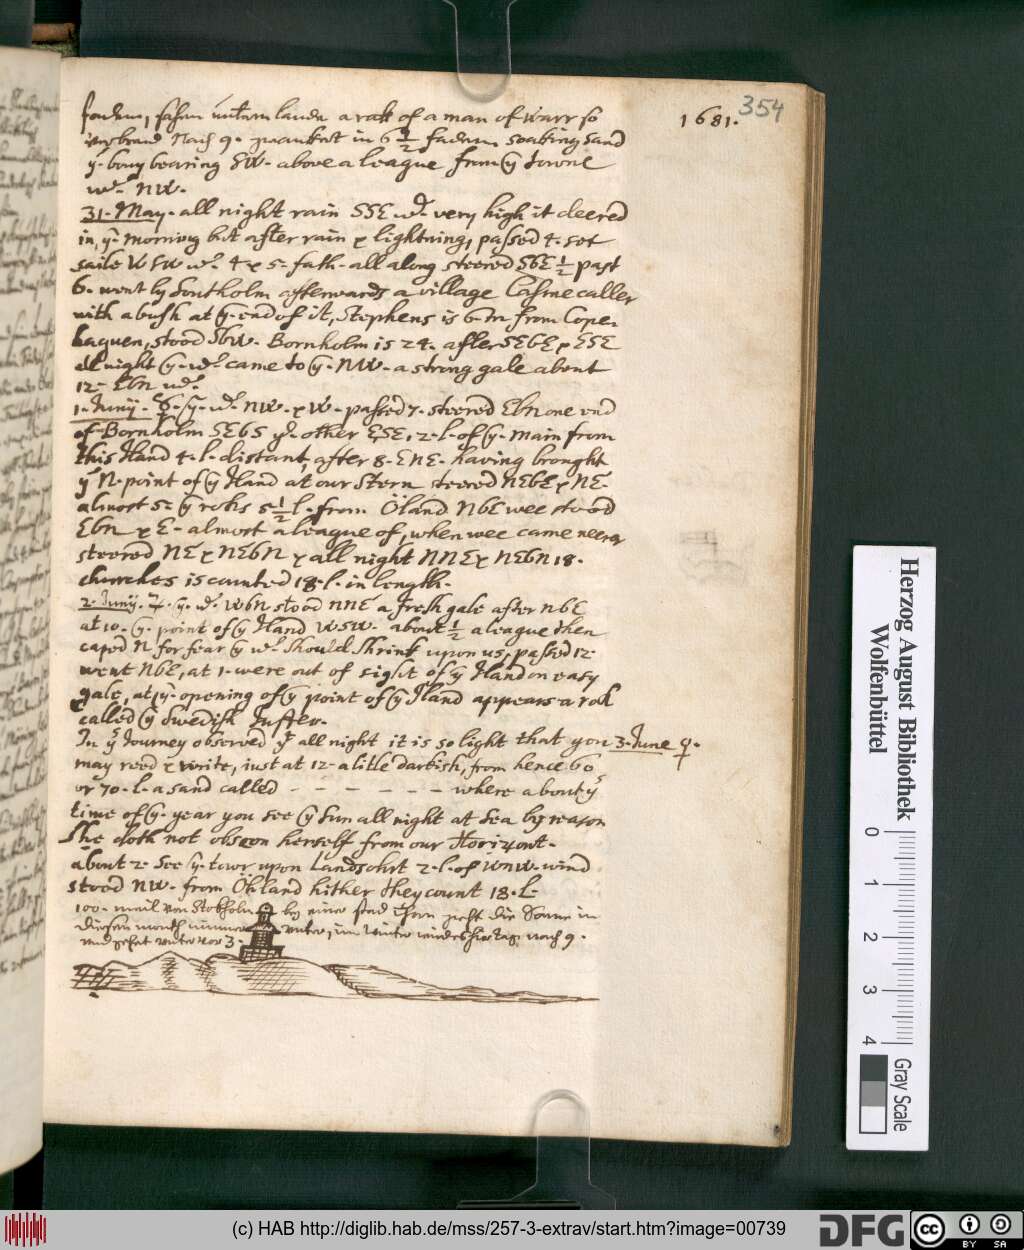 354
1681.
fadem, sahen untern landa a rak of a man of warr so
verbrand Nach 9. in 6 1/2 fadem soaking sand
ye bouy bearing SW. above a league from ye towne
wd. NW.
31. May. all night rain SSE wd. very high it cleered
in, ye morning but after rain & lightning, passed 4. set
saile WSW wd. 4 & 5. fath. all along steered SbE 1/2 past
6. went by Sontholm afterwards a village Casme caller
with a bush at ye end of it, Stephens is 6. m from Copen
haguen, stood SbW. Bornholm is 24. after SEbE & ESE
all night ye wd. came to ye NW. a strong gale about
12. EbN wd.
1. Juny. ☿. ye wd. NW. & W. passed 7. steered EbN one end
of Bornholm SEbS ye other ESE, 2. l. of ye main from
this Iland 4. l. distant, after 8. ENE. having brought
ye N. point of ye Iland at our stern steered NEbE & NE.
almost 5. ye roks 5 1/2 l. from Öland NbE wee stood
EbN & E. almost a league of, when wee came neerer
steered NE & NEbN & all night NNE & NEbN 18.
churches is counted 18. l. in length.
2. Juny. ♃. ye wd. WbN stood NNE a fresh gale after NbE
at 10. ye point of ye Iland WSW. about 1/2 a league then
caped N for fear ye wd. should shrink upon us, passed 12.
went NbE, at 1. were out of sight of ye Iland on easy
gale, at ye opening of ye point of ye Iland appears a rok
called ye Swedish Iuffer.
In ye Journey observed yt all night it is so light that you 3. June ♀.
may reed & write, iust at 12. a litle darkish, from hence 60
or 70. l. a sand called - - - - - - where about ys
time of ye year you see ye Sun all night at sea by reason
she doth not obscon herself from our Horizont.
about 2. see ye towr upon Landsohrt 2. l. of WNW. wind
stood NW. from Öhland hither they count 18. L.
100. mail von Stokholm bey einer stad Thorn geht die Sonne in
diesem month nimmer unter, im Winter
und gehet unter vor 3.
Herzog August Bibliothek
Wolfenbüttel
0 1 2 3 4
Gray Scale
(c) HAB http://diglib.hab.de/mss/257-3-extrav/start.htm?image=00739
DFG
cc BY SA